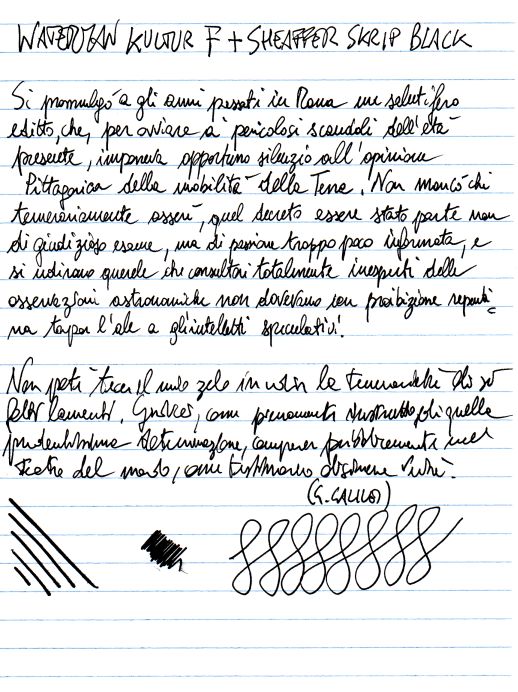 WATERMAN KULTUR F + SHEAFFER SKRIP BLACK
Si promulgò a gli anni passati in Roma un salutifero
editto, che, per ovviare a' pericolosi scandoli dell'età
presente, imponeva opportuno silenzio all'opinione
Pittagorica della mobilità della Terra. Non mancò chi
temerariamente asserì, quel decreto essere stato parto non
di giudizioso esame, ma di passione troppo poco informata, e
si udirono querele che consultori totalmente inesperti delle
osservazioni astronomiche non dovevano con proibizione repenti
na tarpar l'ale a gl'intelletti speculativi.
Non poté tacer il mio zelo in udir la temerarietà di sì
fatti lamenti. Giudicai, come pienamente instrutto di quella
prudentissima determinazione, comparir pubblicamente nel
teatro del mondo, come testimonio di sincera verità.
(G. GALILEI)